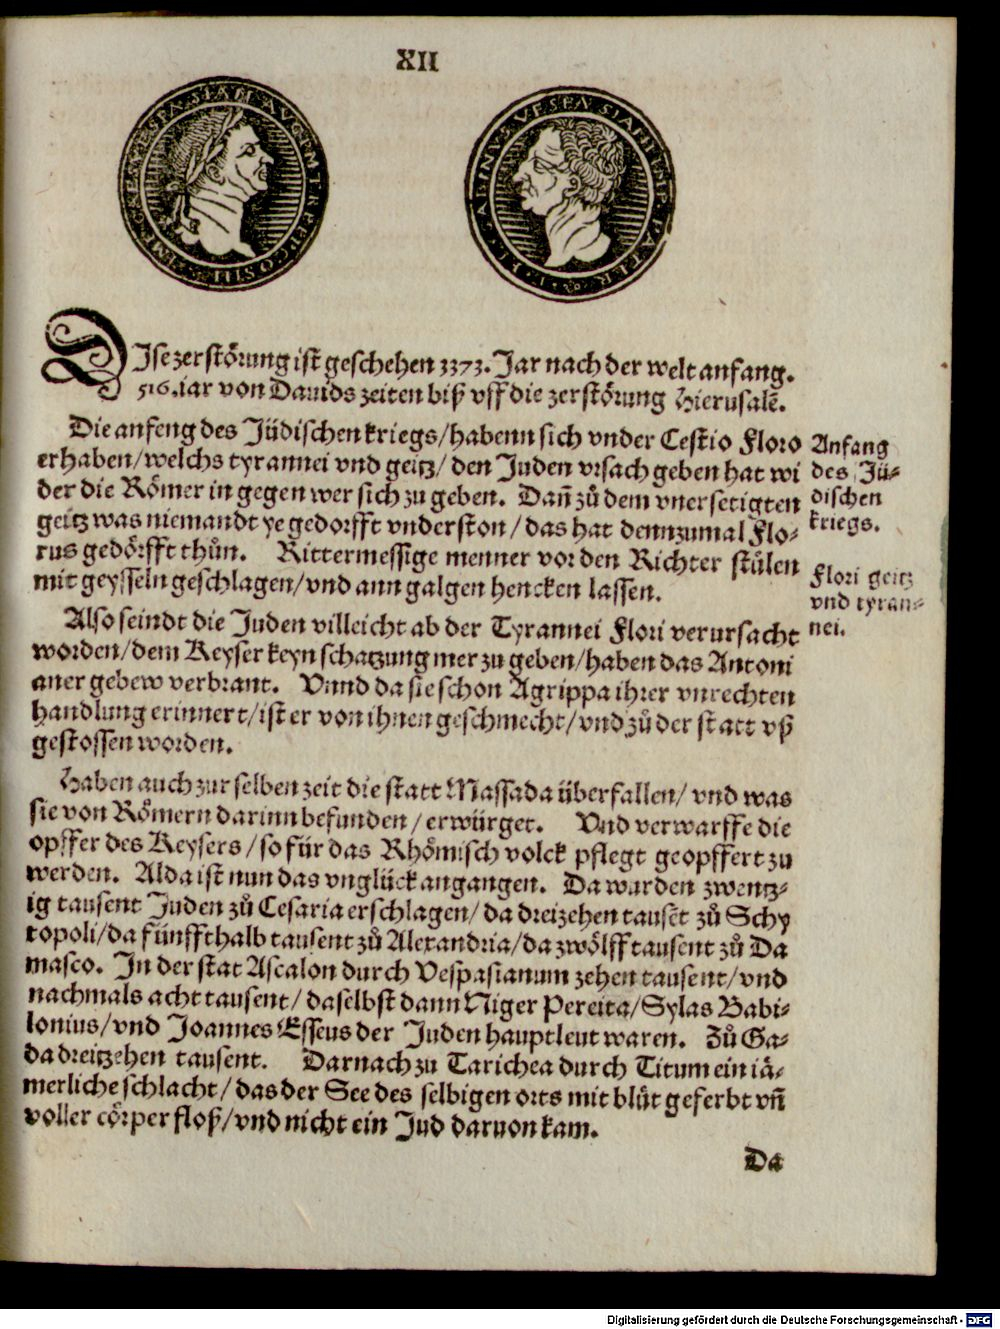 XII
IMP. CAES. VESPASIAN. AVG. P. M. TR. P. P. P. COS. III
FL. SABINVS VESPASIANI IMP. PATER
DJse zerstörung ist geschehen 3373. Jar nach der welt anfang.
516. iar von Dauids zeiten biß vff die zerstörung Hierusalē.
Die anfeng des Jüdischen kriegs/habenn sich vnder Cestio Floro
erhaben/welchs tyrannei vnd geitz/den Juden vrsach geben hat wi
der die Römer in gegen wer sich zu geben. Dañ zů dem vnersetigten
geitz was niemandt ye gedorfft vnderston/das hat dennzumal Flo-
rus gedörfft thůn. Rittermessige menner vor den Richter stülen
mit geysseln geschlagen/vnd ann galgen hencken lassen.
Anfang
des Jü-
dischen
kriegs.
Flori geitz
vnd tyran-
nei.
Also seindt die Juden villeicht ab der Tyrannei Flori verursacht
worden/dem Keyser keyn schatzung mer zu geben/haben das Antoni
aner gebew verbrant. Vnnd da sie schon Agrippa ihrer vnrechten
handlung erinnert/ist er von ihnen geschmecht/vnd zů der statt vß
gestossen worden.
Haben auch zur selben zeit die statt Massada überfallen/vnd was
sie von Römern darinn befunden/erwürget. Vnd verwarffe die
opffer des Keysers/so für das Rhömisch volck pflegt geopffert zu
werden. Alda ist nun das vnglück angangen. Da wurden zwentz-
ig tausent Juden zů Cesaria erschlagen/da dreizehen tausēt zů Schy
topoli/da fünffthalb tausent zů Alexandria/da zwölff tausent zů Da
masco. In der stat Ascalon durch Vespasianum zehen tausent/vnd
nachmals acht tausent/daselbst dann Niger Pereita/Sylas Babi-
lonius/vnd Joannes Esseus der Juden hauptleut waren. Zů Ga-
da dreitzehen tausent. Darnach zu Tarichea durch Titum ein iä-
merliche schlacht/das der See des selbigen orts mit blůt geferbt vñ
voller cörper floß/vnd nicht ein Jud daruon kam.
Da
Digitalisierung gefördert durch die Deutsche Forschungsgemeinschaft - DFG